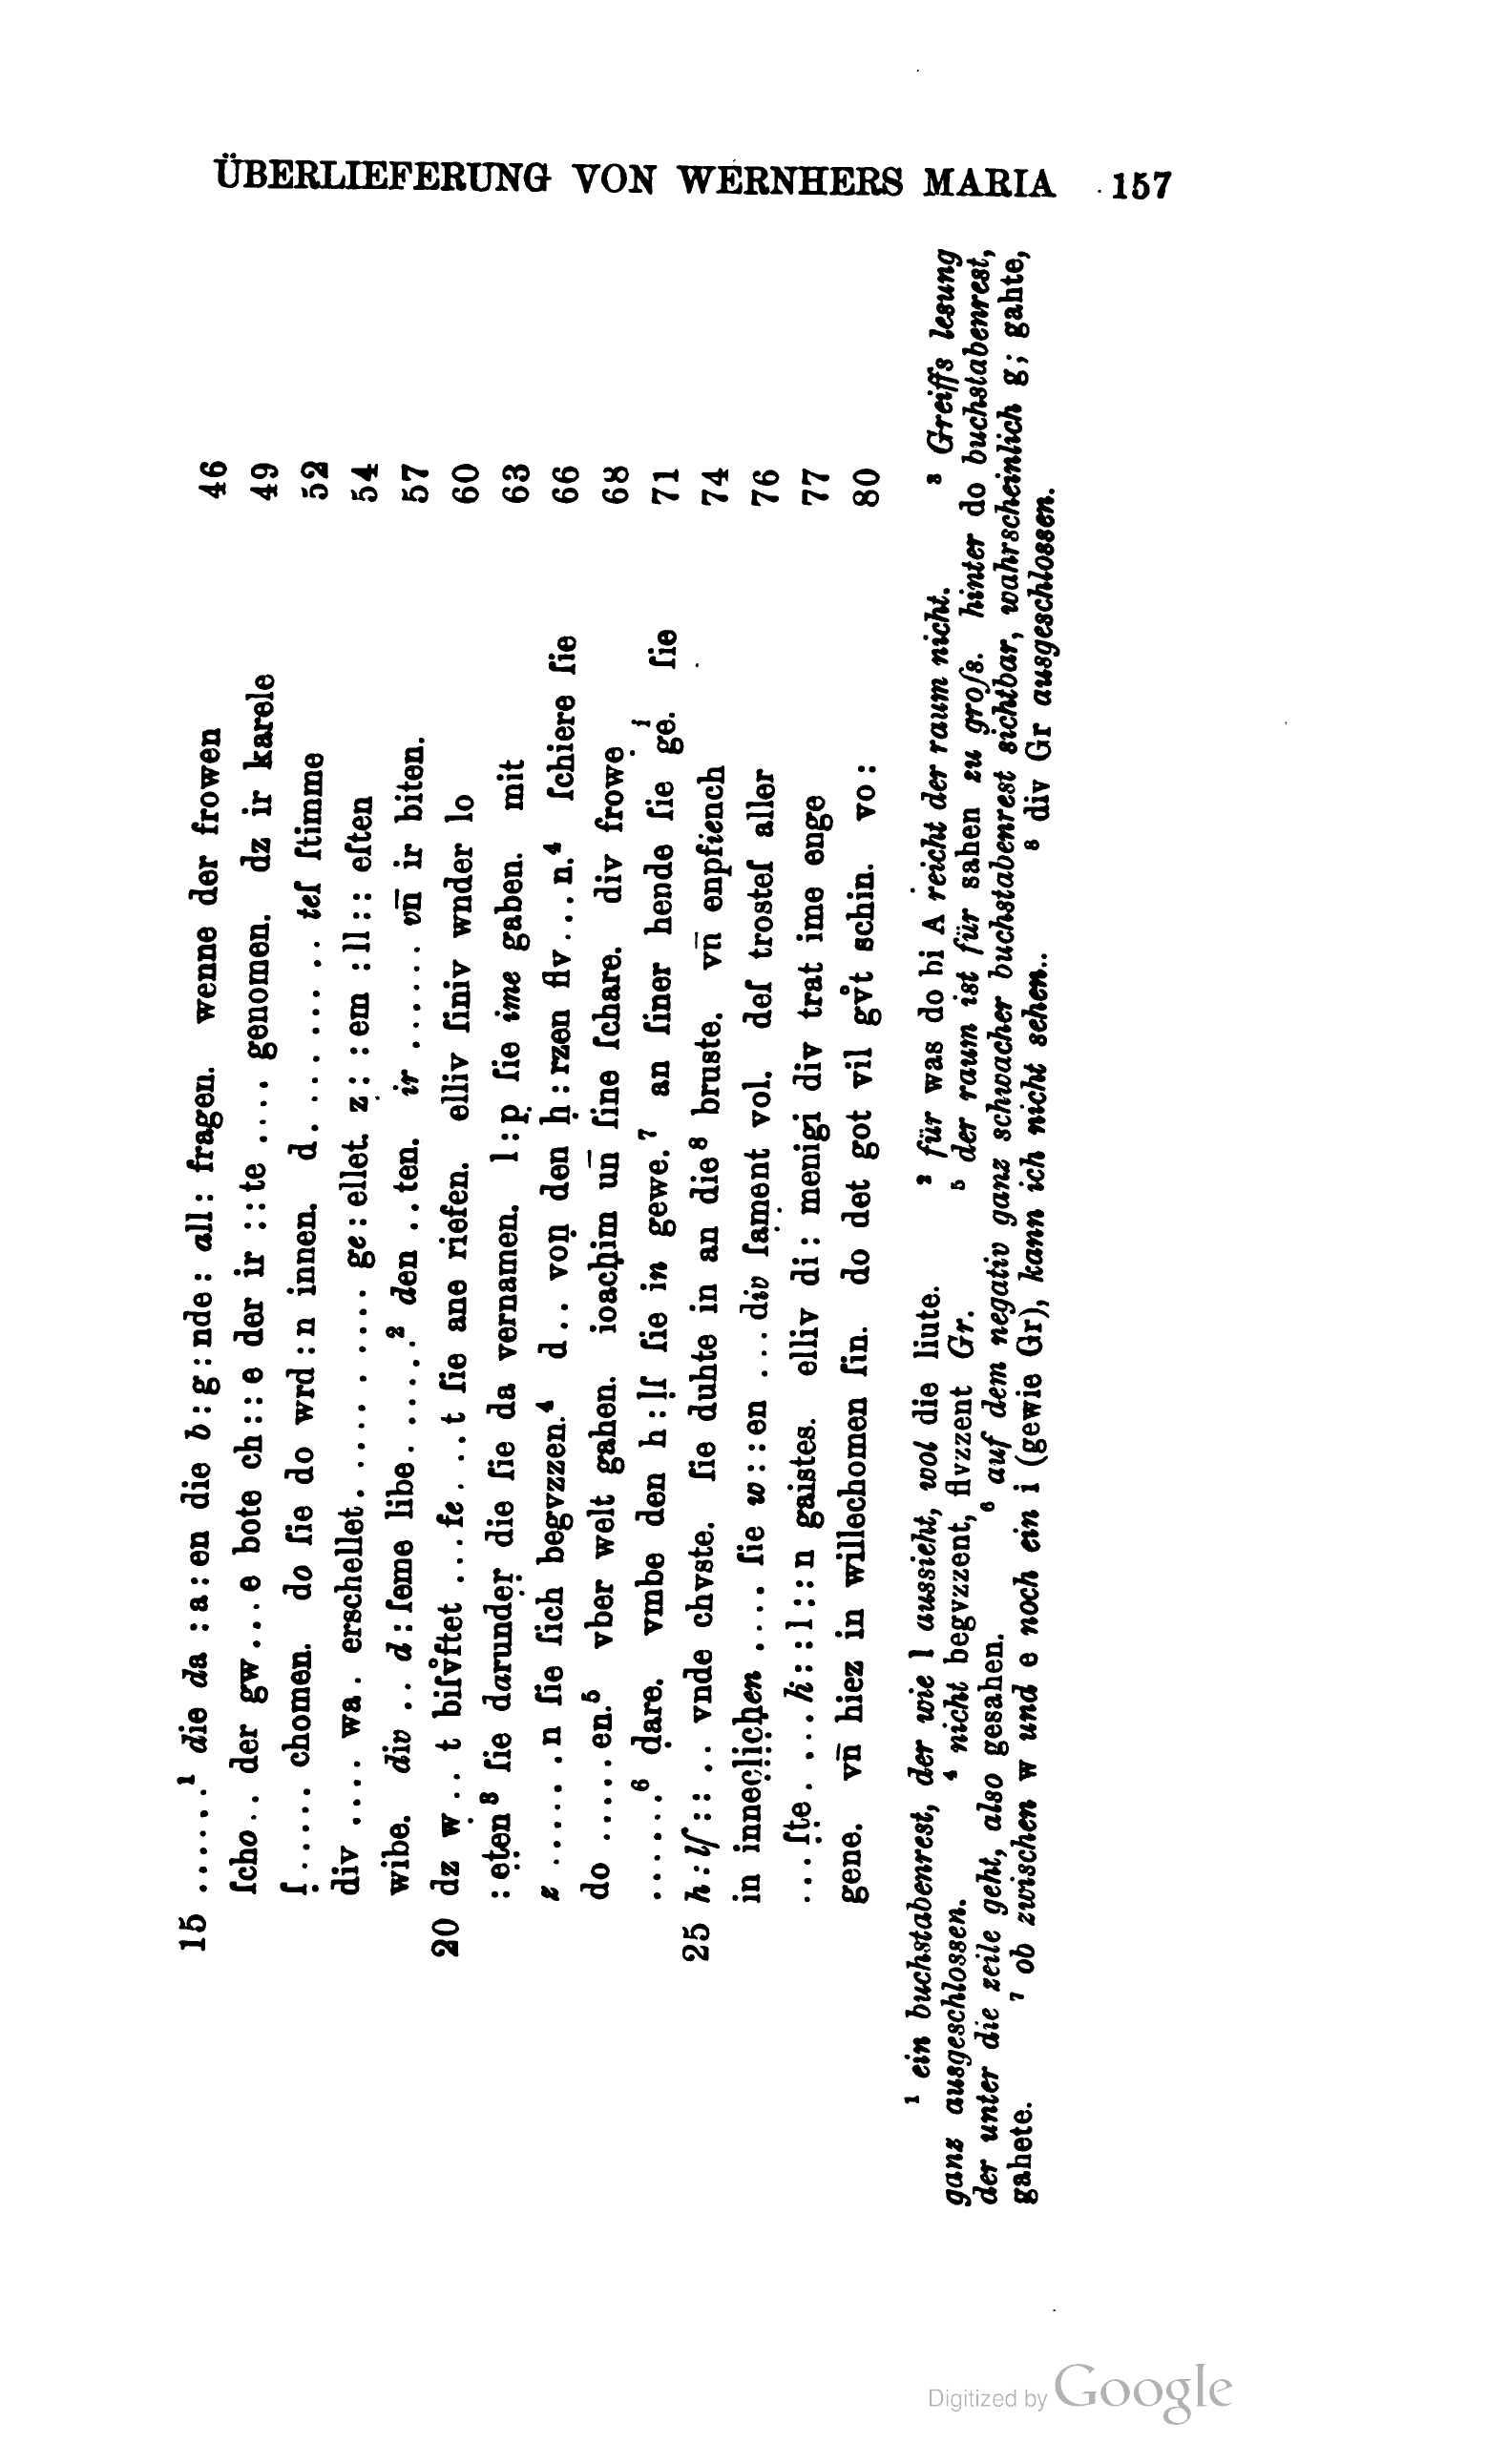 ÜBERLIEFERUNG VON WERNHERS MARIA 157
15 ......¹ die da :a:en die b:g:nde: all: fragen. wenne der frowen 46
ſcho.. der gw...e bote ch::e der ir ::te .... genomen. dz ir karele 49
ſ..... chomen. do ſie do wrd:n innen. d......... teſ ſtimme 52
div .... wa. erschellet.......... ge:ellet. z::em :ll:: eſten 54
wibe. div .. d:ſeme libe.....² den ..ten. ir ...... vn̄ ir biten. 57
20 dz ẉ..t biſv̊ftet ...ſe...t ſie ane riefen. elliv ſiniv wnder lo 60
:ẹṭen³ ſie darundẹṛ die ſie da vernamen. l:p̣ ſie ime gaben. mit 63
z ......n ſie ſich begvzzen.⁴ d.. voṇ den ḥ:rzen flv...n.⁴ ſchiere ſie 66
do .....en.⁵ vber welt gahen. ioacḥim un̄ ſine ſchare. div frowe 68
......⁶ ḍare. vmbe den h:ḷſ ſie in gewe.⁷ an ſiner hende ſie ge.ͥ ſie 71
25 h:lſ::.. vnde chvste. ſie duhte in an die⁸ bruste. vn̄ enpfiench 74
in innec̣ḷịc̣ḥen .... ſie w::en ...div ſaṃent vol. deſ trosteſ aller 76
...ſṭe....h::l::n gaistes. elliv di: menigi div trat ime enge 77
gene. vn̄ hiez in willechomen ſin. do det got vil gv̊t schin. vo: 80
¹ ein buchstabenrest, der wie l aussieht, wol die liute. ² für was do bi A reicht der raum nicht. ³ Greiffs lesung
ganz ausgeschlossen. ⁴ nicht begvzzent, flvzzent Gr. ⁵ der raum ist für sahen zu groſs. hinter do buchstabenrest,
der unter die zeile geht, also gesahen. ⁶ auf dem negativ ganz schwacher buchstabenrest sichtbar, wahrscheinlich g; gahte,
gahete. ⁷ ob zwischen w und e noch ein i (gewie Gr), kann ich nicht sehen.. ⁸ div Gr ausgeschlossen.
Digitized by Google